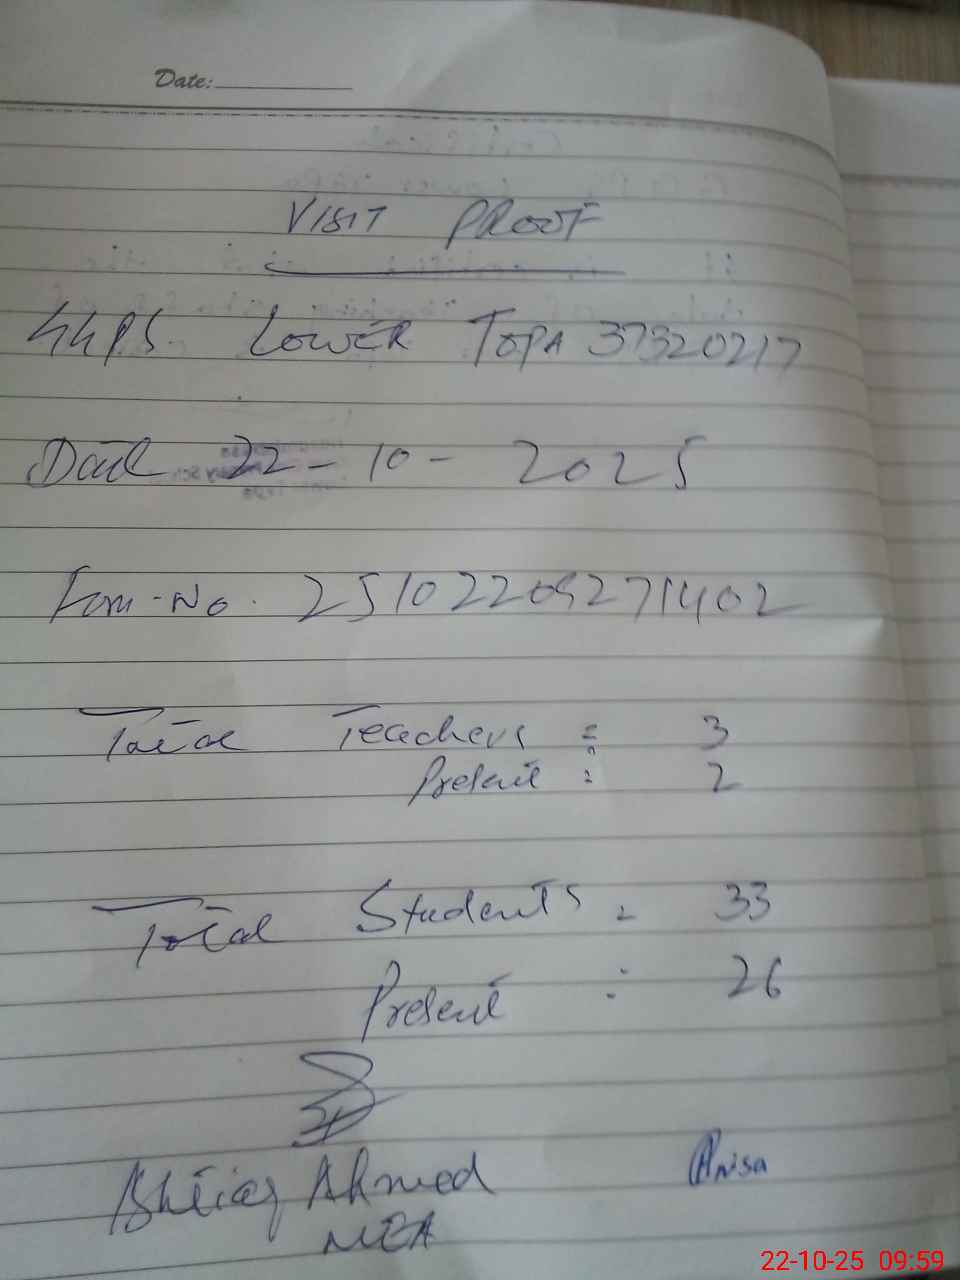 Date:
VISIT PROOF
GGPS. LOWER TOPA 37320217
Date 22-10-2025
Form-No. 251022092711402
Total Teachers = 3
Present : 2
Total Students = 33
Present : 26
Ahmed
MEA
Anisa
22-10-25 09:59